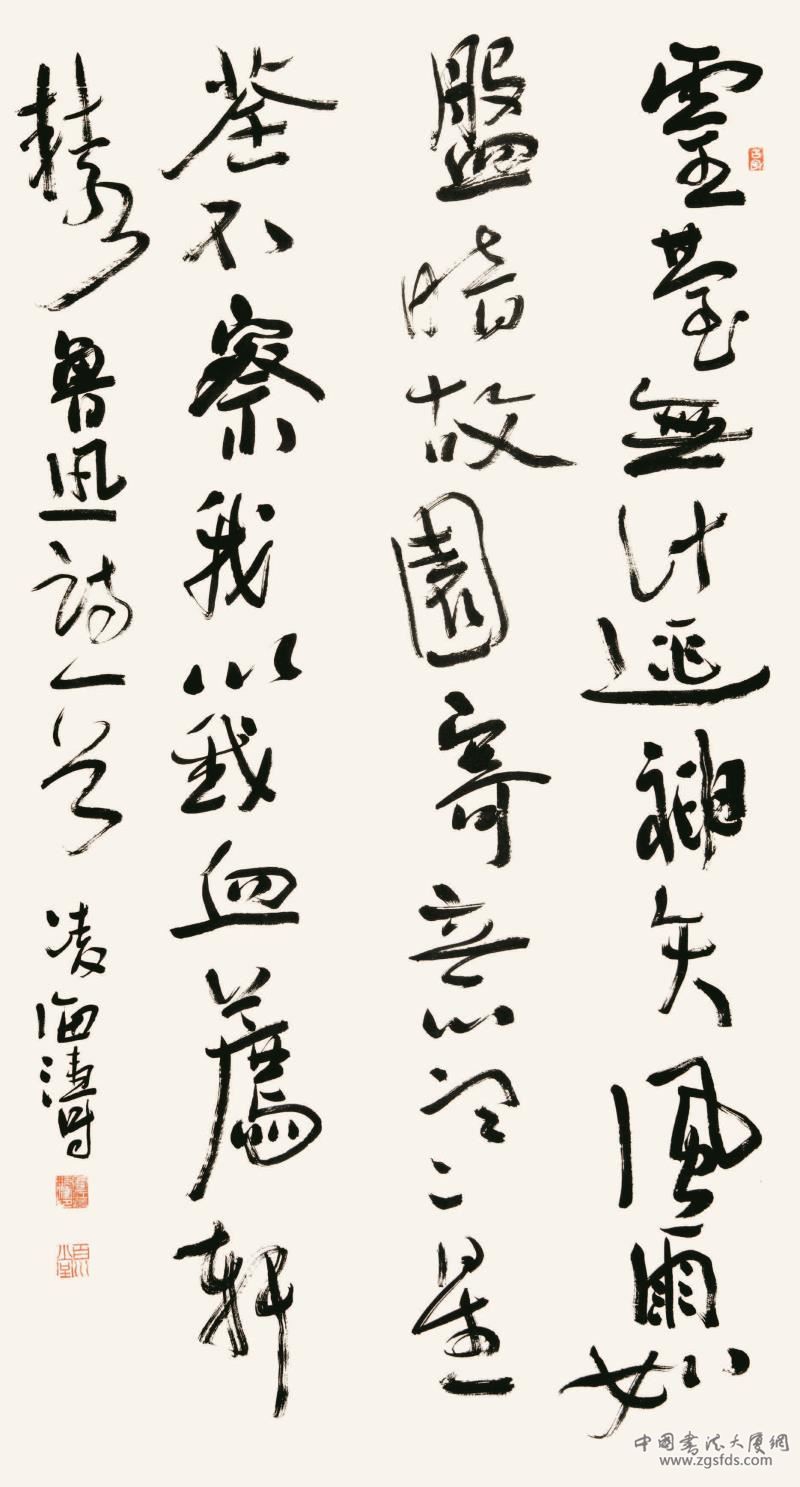 靈臺無計逃神矢風雨如
盤暗故園寄意寒星
荃不察我以我血薦軒
轅魯迅詩一首 凌海濤
中國書法大廈網
www.zgsfds.com